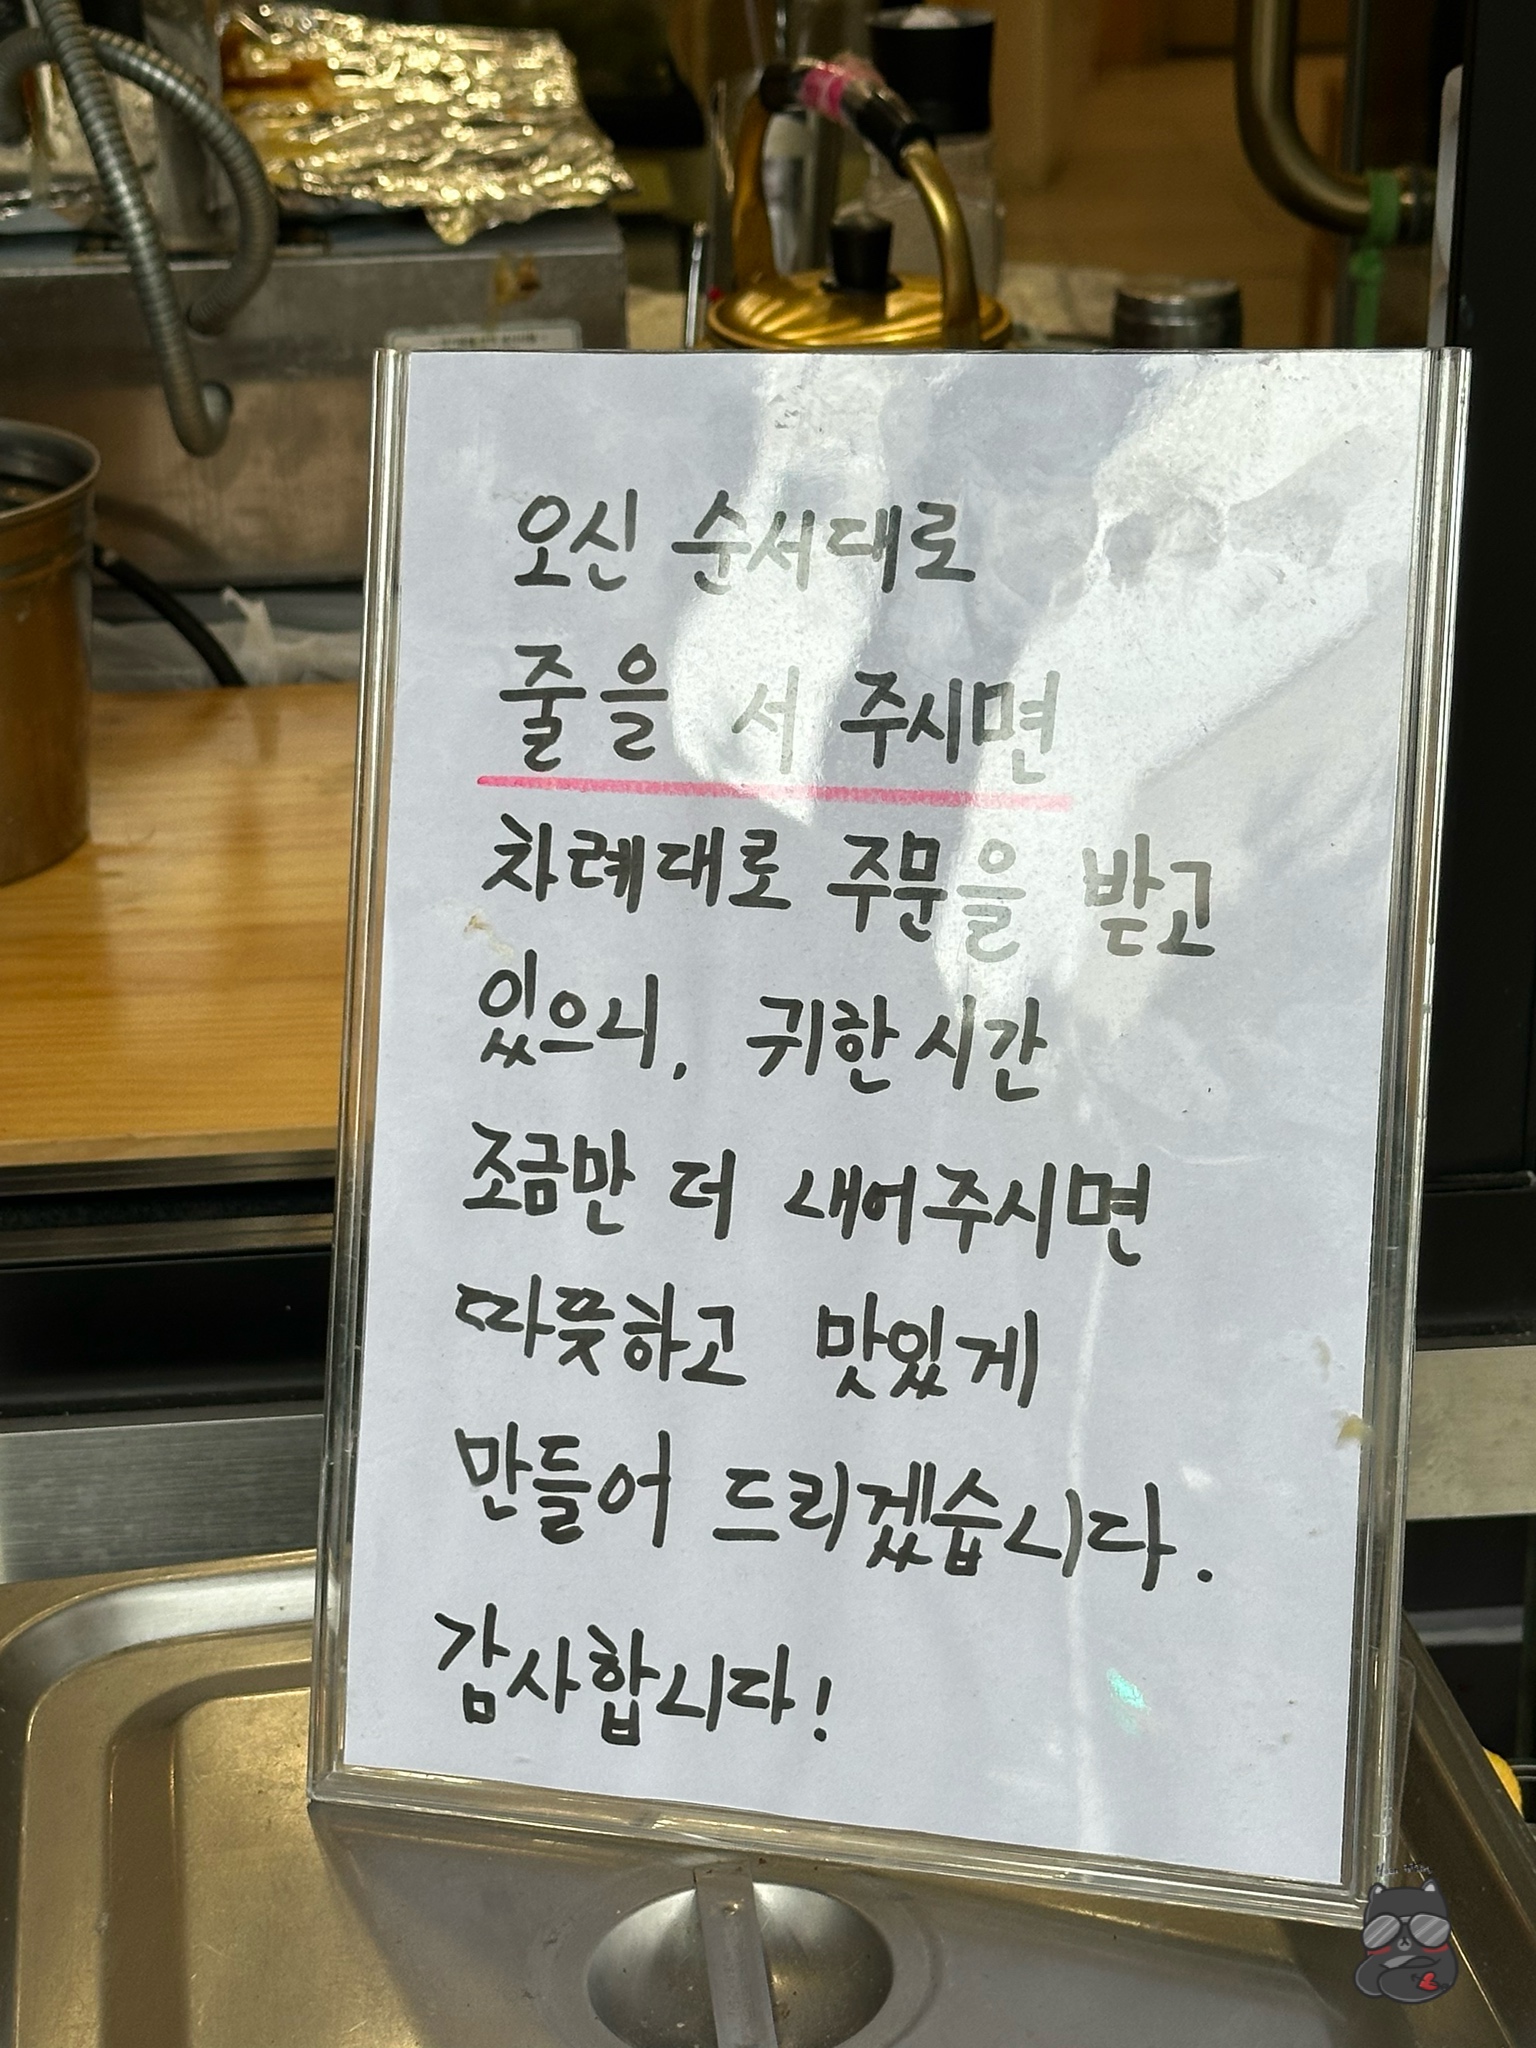 오신 순서대로
줄을 서 주시면
차례대로 주문을 받고
있으니, 귀한 시간
조금만 더 내어주시면
따뜻하고 맛있게
만들어 드리겠습니다.
감사합니다!